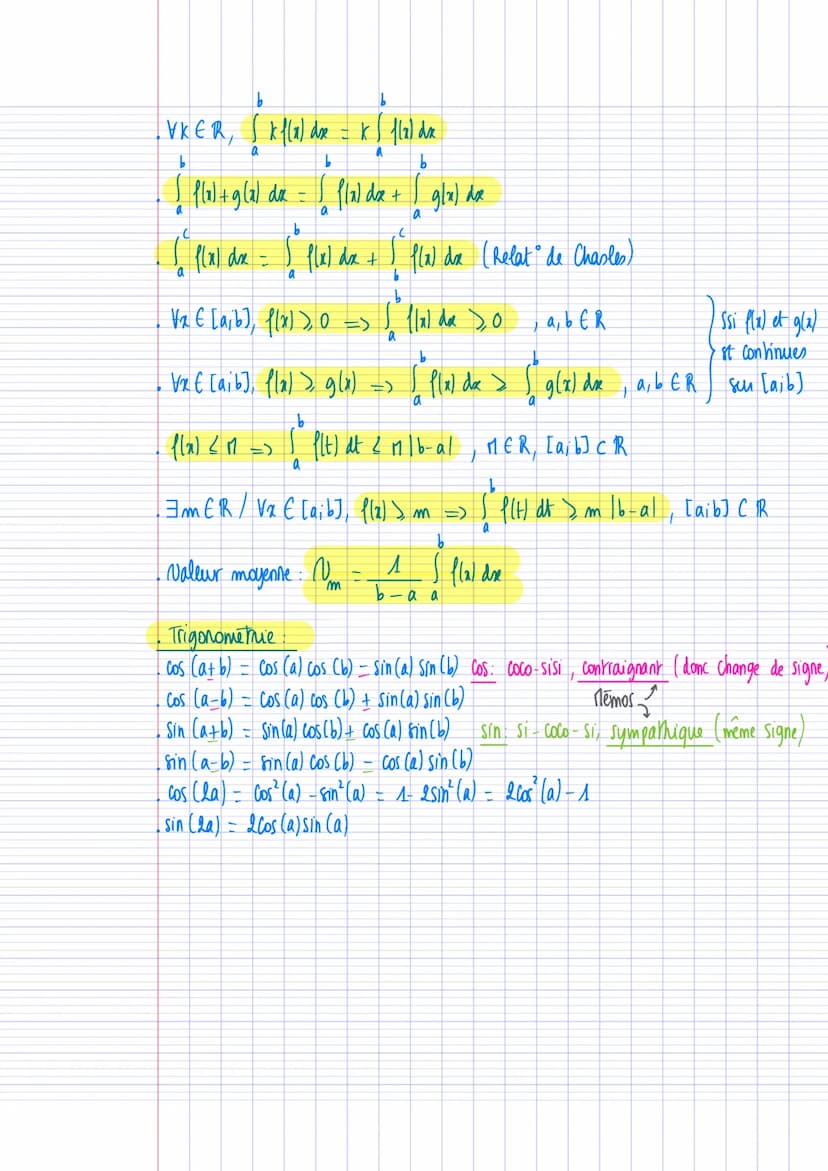 . ∀k ∈ ℝ, ∫_a^b k f(x) dx = k ∫_a^b f(x) dx
. ∫_a^b f(x) + g(x) dx = ∫_a^b f(x) dx + ∫_a^b g(x) dx
. ∫_a^c f(x) dx = ∫_a^b f(x) dx + ∫_b^c f(x) dx (Relat° de Chasles)
. ∀x ∈ [a;b], f(x) ⩾ 0 => ∫_a^b f(x) dx ⩾ 0 , a, b ∈ ℝ
. ∀x ∈ [a;b], f(x) ⩾ g(x) => ∫_a^b f(x) dx ⩾ ∫_a^b g(x) dx , a, b ∈ ℝ
ssi f(x) et g(x)
st continues
sur [a;b]
. f(x) ⩽ M => ∫_a^b f(t) dt ⩽ M |b-a| , M ∈ ℝ, [a;b] ⊂ ℝ
. ∃m ∈ ℝ / ∀x ∈ [a;b], f(x) ⩾ m => ∫_a^b f(t) dt ⩾ m |b-a| , [a;b] ⊂ ℝ
. Valeur moyenne : V_m = 1/(b-a) ∫_a^b f(x) dx
. Trigonométrie :
. cos (a+b) = cos(a) cos(b) - sin(a) sin(b) cos : coco-sisi , contraignant (donc change de signe)
. cos (a-b) = cos(a) cos(b) + sin(a) sin(b) Mémos
. sin (a+b) = sin(a) cos(b) + cos(a) sin(b) sin : si-coco-si, sympathique (même signe)
. sin (a-b) = sin(a) cos(b) - cos(a) sin(b)
. cos (2a) = cos²(a) - sin²(a) = 1 - 2sin²(a) = 2cos²(a) - 1
. sin (2a) = 2cos(a) sin(a)